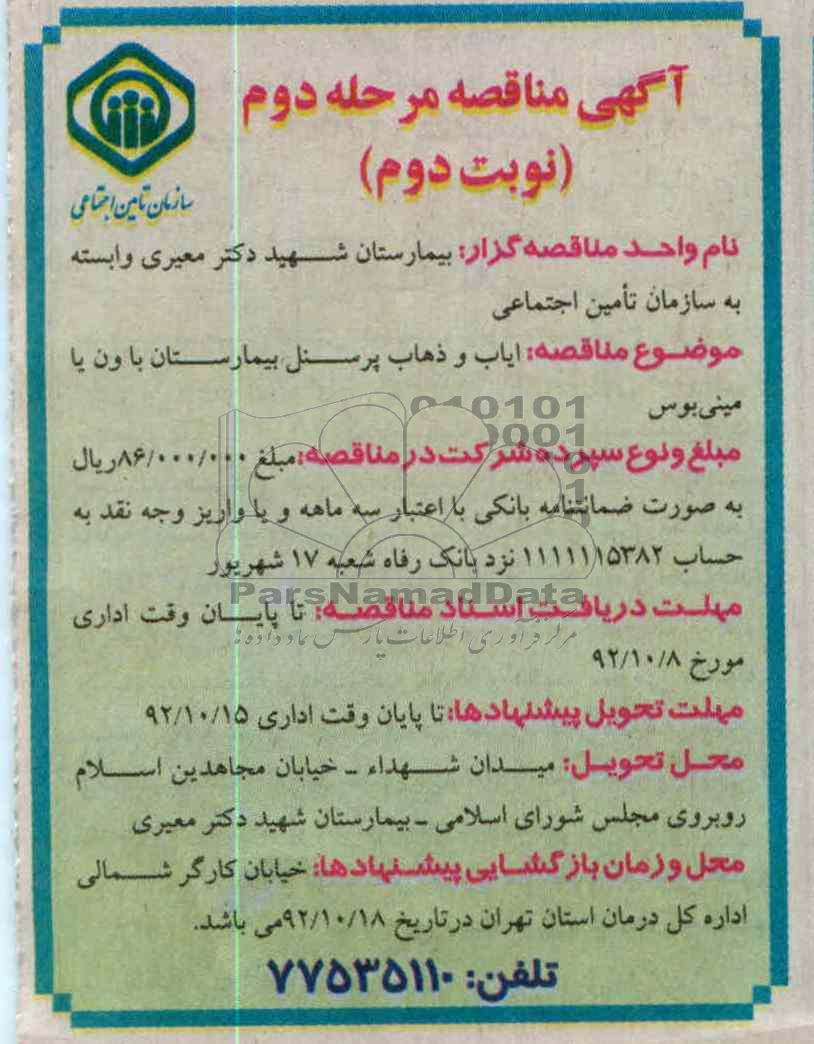 آگهی مناقصه مرحله دوم
(نوبت دوم)
سازمان تامین اجتماعی
نام واحد مناقصه گزار: بیمارستان شهید دکتر معیری وابسته
به سازمان تأمین اجتماعی
موضوع مناقصه: ایاب و ذهاب پرسنل بیمارستان با ون یا
مینی‌بوس
010101
0001
مبلغ و نوع سپرده شرکت در مناقصه: مبلغ ۸۶/۰۰۰/۰۰۰ ریال
به صورت ضمانتنامه بانکی با اعتبار سه ماهه و یا واریز وجه نقد به
حساب ۱۱۱۱۱۱۵۳۸۲ نزد بانک رفاه شعبه ۱۷ شهریور
ParsNamadData
مهلت دریافت اسناد مناقصه: تا پایان وقت اداری
مرکز فرآوری اطلاعات پارس نماد داده ها
مورخ ۹۲/۱۰/۸
مهلت تحویل پیشنهادها: تا پایان وقت اداری ۹۲/۱۰/۱۵
محل تحویل: میدان شهداء ـ خیابان مجاهدین اسلام
روبروی مجلس شورای اسلامی ـ بیمارستان شهید دکتر معیری
محل و زمان بازگشایی پیشنهادها: خیابان کارگر شمالی
اداره کل درمان استان تهران درتاریخ ۹۲/۱۰/۱۸می باشد.
تلفن: ۷۷۵۳۵۱۱۰